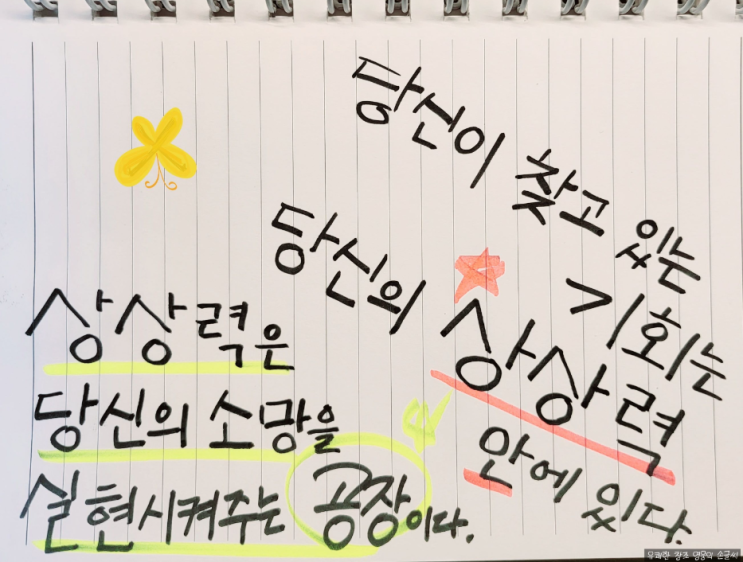 당신이 찾고 있는
기회는
당신의 상상력
안에 있다.
상상력은
당신의 소망을
실현시켜주는 공장이다.
유쾌한 창조 영웅의 손글씨